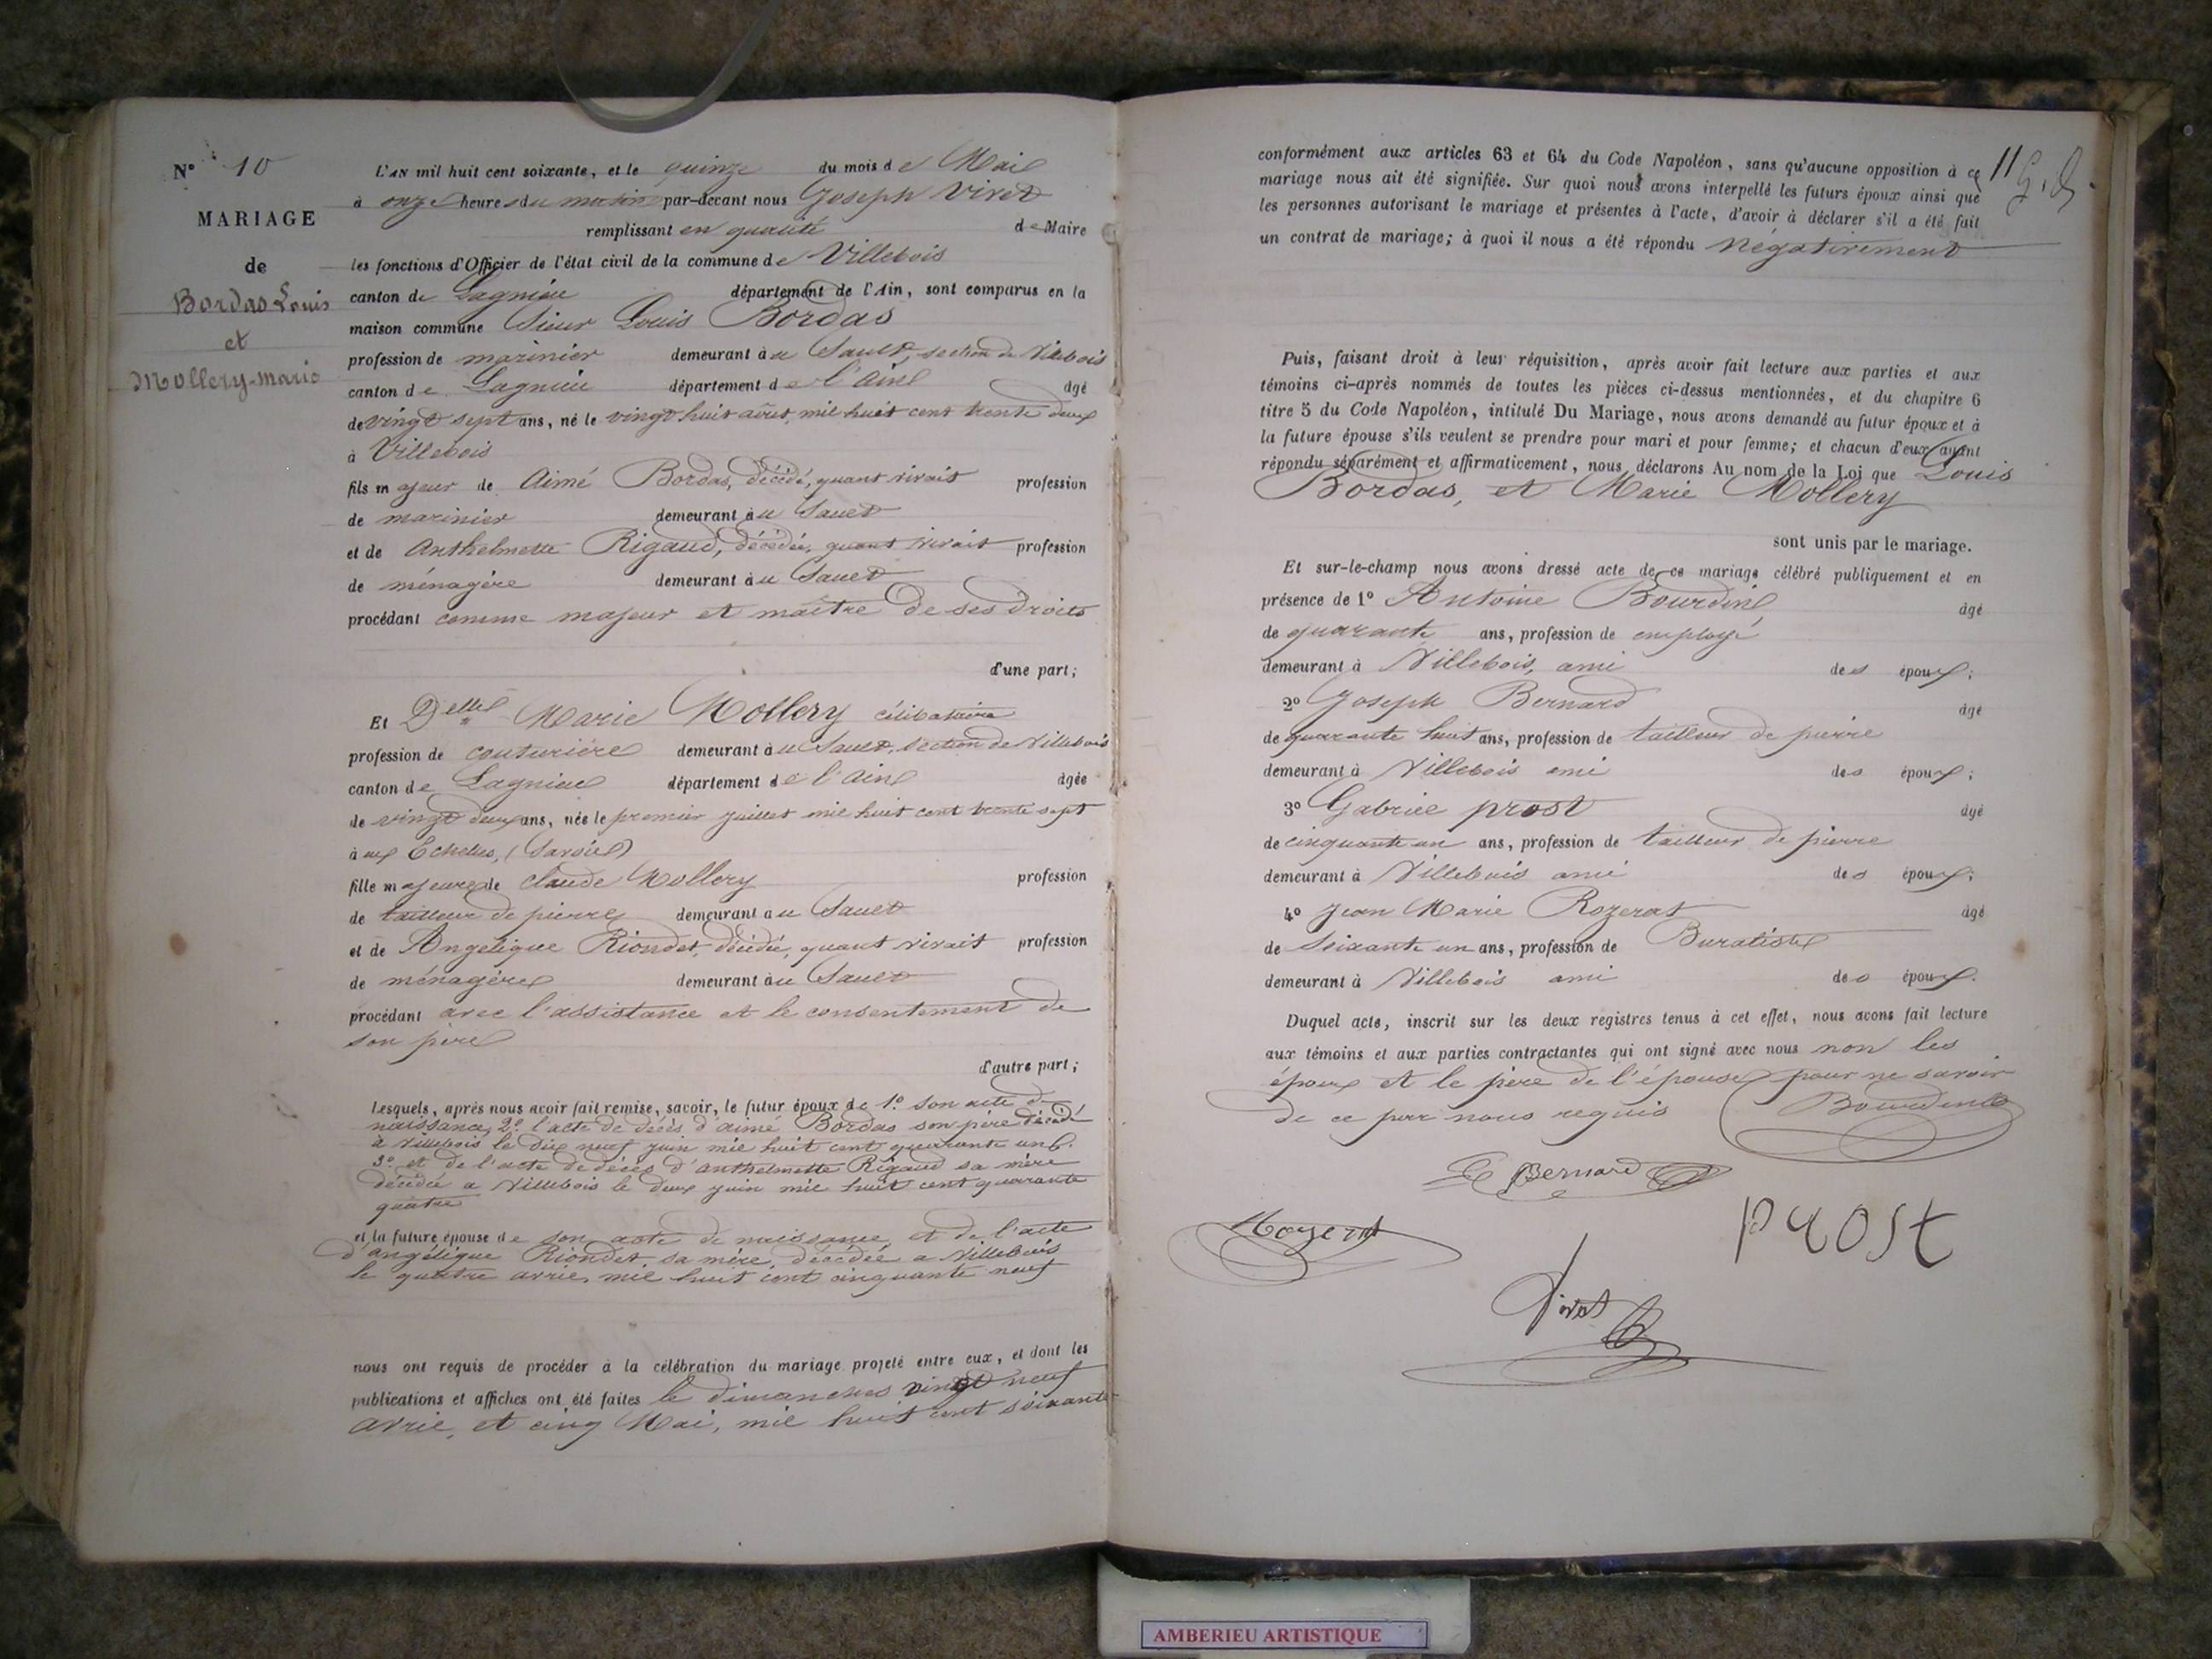 N° 10
MARIAGE
de
Bordas Louis
et
Mollery-marie
L'AN mil huit cent soixante, et le quinze du mois de Mai
à onze heures du matin par-devant nous Joseph Viret
remplissant en qualité de Maire
les fonctions d'Officier de l'état civil de la commune de Villebois
canton de Lagnieu département de l'Ain, sont comparus en la
maison commune Sieur Louis Bordas
profession de marinier demeurant au Sault, section de Villebois
canton de Lagnieu département de l'Ain âgé
de vingt sept ans, né le vingt huit août, mil huit cent trente deux
à Villebois
fils majeur de Aimé Bordas, décédé, quant vivait profession
de marinier demeurant au Sault
et de Anthelmette Rigaud, décédée, quant vivait profession
de ménagère demeurant au Sault
procédant comme majeur et maître de ses droits
d'une part;
Et Delle Marie Mollery célibataire
profession de couturière demeurant au Sault, section de Villebois
canton de Lagnieu département de l'Ain âgée
de vingt deux ans, née le premier juillet mil huit cent trente sept
à aux Echelles, (Savoie)
fille majeure de Claude Mollery profession
de tailleur de pierre demeurant au Sault
et de Angélique Riondet, décédée, quant vivait profession
de ménagère demeurant au Sault
procédant avec l'assistance et le consentement de
son père
d'autre part;
Lesquels, après nous avoir fait remise, savoir, le futur époux de 1° son acte de
naissance, 2° l'acte de décès d'aimé Bordas son père décédé
à Villebois le dix neuf juin mil huit cent quarante un
3° et de l'acte de décès d'Anthelmette Rigaud sa mère
décédée a Villebois le deux juin mil huit cent quarante
quatre
et la future épouse de son acte de naissance et de l'acte
d'angélique Riondet, sa mère, décédée a Villebois
le quatre avril mil huit cent cinquante neuf
nous ont requis de procéder à la célébration du mariage projeté entre eux, et dont les
publications et affiches ont été faites le dimanches vingt neuf
avril, et cinq Mai, mil huit cent soixante
conformément aux articles 63 et 64 du Code Napoléon, sans qu'aucune opposition à ce
mariage nous ait été signifiée. Sur quoi nous avons interpellé les futurs époux ainsi que
les personnes autorisant le mariage et présentes à l'acte, d'avoir à déclarer s'il a été fait
un contrat de mariage; à quoi il nous a été répondu négativement
11
Puis, faisant droit à leur réquisition, après avoir fait lecture aux parties et aux
témoins ci-après nommés de toutes les pièces ci-dessus mentionnées, et du chapitre 6
titre 5 du Code Napoléon, intitulé Du Mariage, nous avons demandé au futur époux et à
la future épouse s'ils veulent se prendre pour mari et pour femme; et chacun d'eux ayant
répondu séparément et affirmativement, nous déclarons Au nom de la Loi que Louis
Bordas, et Marie Mollery
sont unis par le mariage.
Et sur-le-champ nous avons dressé acte de ce mariage célébré publiquement et en
présence de 1° Antoine Bourdin âgé
de quarante ans, profession de employé
demeurant à Villebois, ami des époux;
2° Joseph Bernard âgé
de quarante huit ans, profession de tailleur de pierre
demeurant à Villebois ami des époux;
3° Gabriel prost âgé
de cinquante un ans, profession de tailleur de pierre
demeurant à Villebois ami des époux;
4° Jean Marie Rozerat âgé
de Soixante un ans, profession de Buraliste
demeurant à Villebois ami des époux.
Duquel acte, inscrit sur les deux registres tenus à cet effet, nous avons fait lecture
aux témoins et aux parties contractantes qui ont signé avec nous non les
époux et le père de l'épouse pour ne savoir
de ce par nous requis
Bourdin
Bernard
prost
Viret
AMBERIEU ARTISTIQUE